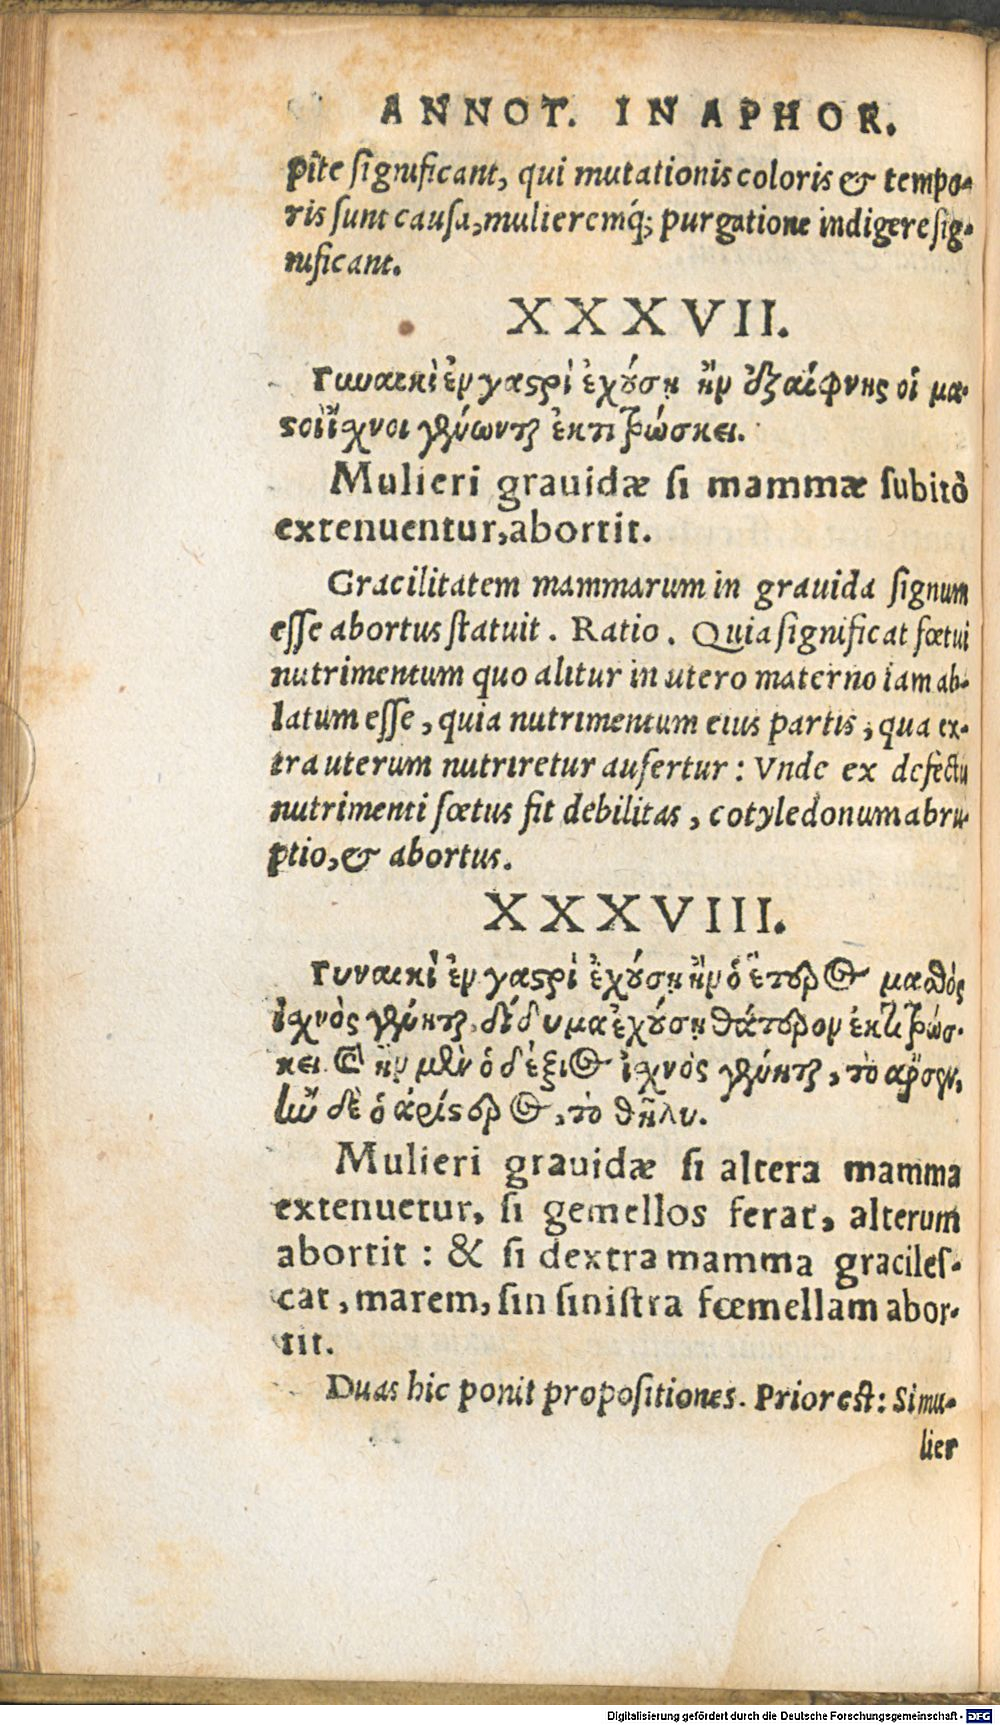 ANNOT. IN APHOR.
pite significant, qui mutationis coloris & tempo-
ris sunt causa, mulieremq́; purgatione indigere sig-
nificant.
XXXVII.
Γυναικὶ ἐν γαστρὶ ἐχούσῃ ἢν ἐξαίφνης οἱ μα-
στοὶ ἴχνοι γένωνται ἐκτιτρώσκει.
Mulieri grauidæ si mammæ subitò
extenuentur, abortit.
Gracilitatem mammarum in grauida signum
esse abortus statuit. Ratio. Quia significat fœtui
nutrimentum quo alitur in utero materno iam ab-
latum esse, quia nutrimentum eius partis, qua ex-
tra uterum nutriretur aufertur: Vnde ex defectu
nutrimenti fœtus fit debilitas, cotyledonum abru-
ptio, & abortus.
XXXVIII.
Γυναικὶ ἐν γαστρὶ ἐχούσῃ ἢν ὁ ἕτερος μαθὸς
ἰχνὸς γένηται, δίδυμα ἐχούσῃ θάτερον ἐκτιτρώσ-
κει. Καὶ ἢν μὲν ὁ δέξιος ἰχνὸς γένηται, τὸ ἄρσεν,
ἢν δὲ ὁ ἀρίστερος, τὸ θῆλυ.
Mulieri grauidæ si altera mamma
extenuetur, si gemellos ferat, alterum
abortit: & si dextra mamma graciles-
cat, marem, sin sinistra fœmellam abor-
tit.
Duas hic ponit propositiones. Prior est: Si mu-
lier
Digitalisierung gefördert durch die Deutsche Forschungsgemeinschaft - DFG